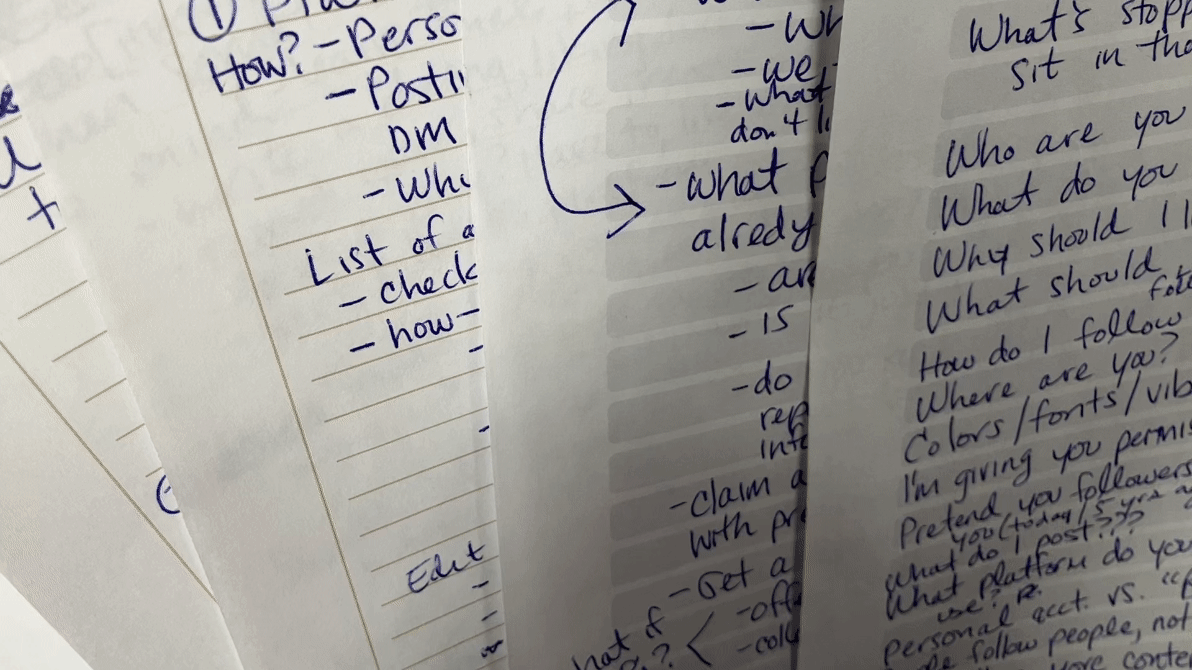 +
①
How? - Perso
- Posti
DM
- Whi
List of a
- check
- how-
-
-
Edit
-
-
or
- Wh
- we
- What
don't l
- What p
alredy
- are
- IS
- do
rep
info
- claim a
with pr
- Get a
- off
- coll
hat if
What's stopp
Sit in tha
Who are you
What do you
Why should I l
What should
follo
How do I follow
Where are you?
Colors/fonts/vib
I'm giving you permis
Pretend you followers
you (today/5 yrs a
What do I post???
What platform do you
use?
Personal acct. vs. "P
follow people, not
more conte